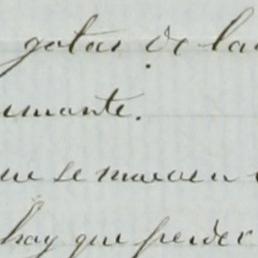 gotas de la
umante.
ue se mueve
hay que perder